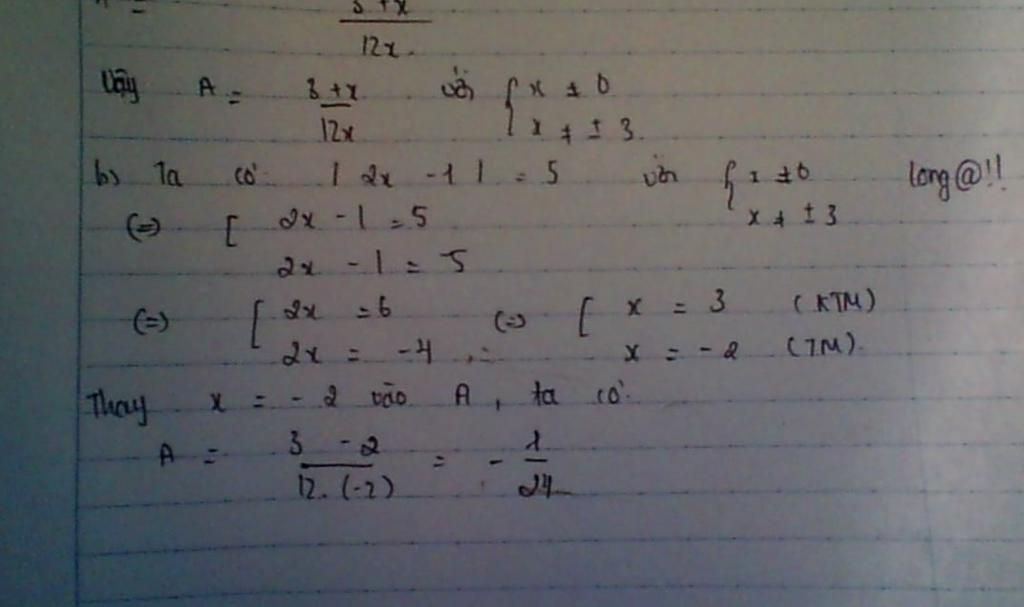 = 3+x / 12x
Vậy A = 3+x / 12x với { x ≠ 0
x ≠ ± 3.
b) Ta có: |2x - 1| = 5 với { x ≠ 0 long@!!
x ≠ ± 3
(=) [ 2x - 1 = 5
2x - 1 = 5
(=) [ 2x = 6 (=) [ x = 3 (KTM)
2x = -4 x = -2 (TM).
Thay x = -2 vào A, ta có:
A = 3 - 2 / 12.(-2) = - 1 / 24